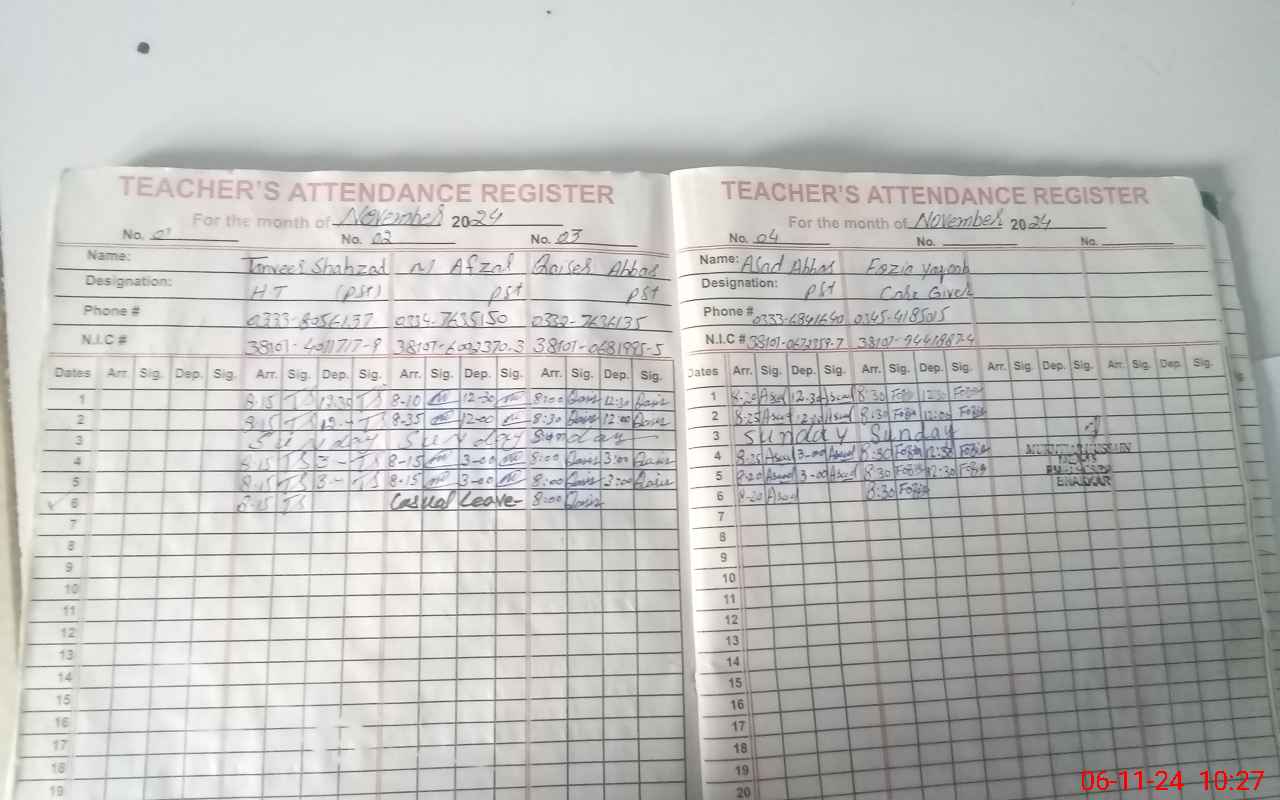 TEACHER'S ATTENDANCE REGISTER
For the month of November 2024
No. 01 No. 02 No. 03
Name: Tanveer Shahzad M Afzal Qaiser Abbas
Designation: HT (PST) PST PST
Phone # 0333-8056137 0334-7635150 0332-7636135
N.I.C # 38101-4011717-9 38101-0681995-5
Dates Arr. Sig. Dep. Sig. Arr. Sig. Dep. Sig. Arr. Sig. Dep. Sig. Arr. Sig. Dep. Sig.
1 8-15 TS 12-30 TS 8-10 12-30 8:00 Qais 12:30 Qais
2 8-15 TS 12- TS 8-35 12-00 8:30 Qais 12:00 Qais
3 Sunday Sunday Sunday
4 8-15 TS 3- TS 8-15 3-00 8:00 Qais 3:00 Qais
5 8-15 TS 3- TS 8-15 3-00 8:00 Qais 3:00 Qais
6 8-15 TS Casual Leave 8:00 Qais
7
8
9
10
11
12
13
14
15
16
17
18
19
TEACHER'S ATTENDANCE REGISTER
For the month of November 2024
No. 04 No. No.
Name: Asad Abbas Fozia
Designation: PST Care Giver
Phone # 0333-6841640 0345-4185015
N.I.C #
Dates Arr. Sig. Dep. Sig. Arr. Sig. Dep. Sig. Arr. Sig. Dep. Sig. Arr. Sig. Dep. Sig.
1 8-20 Asad 12-30 Asad 8:30 Fozia 12:30 Fozia
2 8-25 Asad 12-00 Asad 8:30 Fozia 12:00 Fozia
3 Sunday Sunday
4 8-25 Asad 3-00 Asad 8:30 Fozia 12:30 Fozia
5 8-20 Asad 3-00 Asad 8:30 Fozia 12:30 Fozia
6 8-20 Asad 8:30 Fozia
BHAKKAR
7
8
9
10
11
12
13
14
15
16
17
18
19
20
06-11-24 10:27